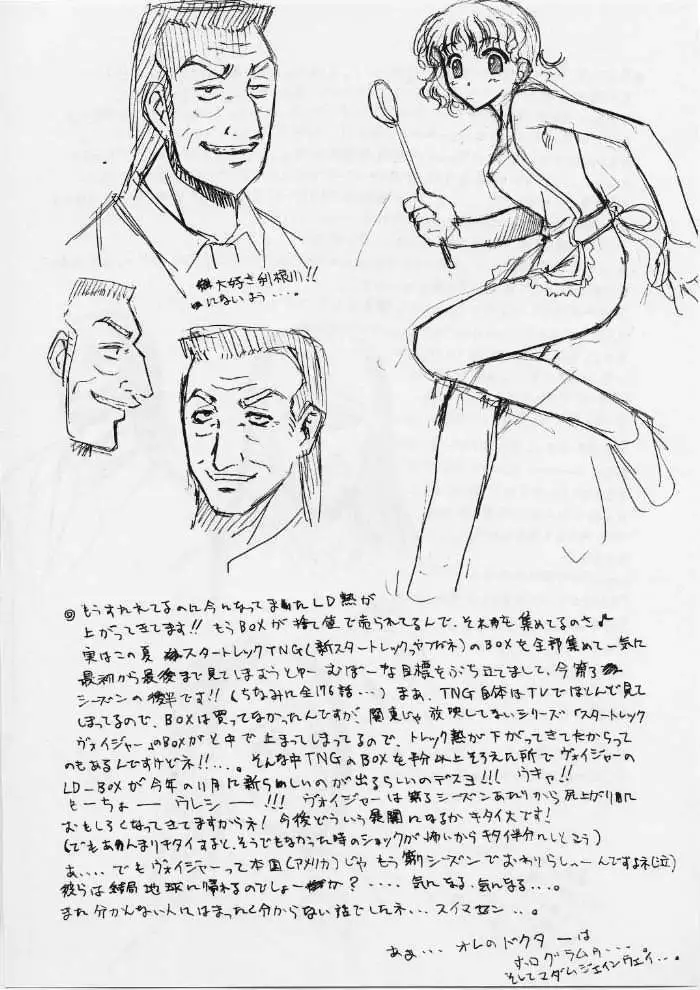 大好き利根川!!
にないよう…。
◎もうすたれてるのに今になってまたLD熱が
上がってきてます!! もうBOXが捨て値で売られてるんで、それを集めてるのさ♪
実はこの夏 スタートレックTNG(新スタートレックってヤツがネ)のBOXを全部集めて一気に
最初から最後まで見てしまおうとゆー むぼーな目標をぶち立てまして、今第5
シーズンの後半です!!(ちなみに全176話…)まあ、TNG自体はTVでほとんど見て
しまってるので、BOXは買ってなかったんですが、関東じゃ放映してないシリーズ「スタートレック
ヴォイジャー」のBOXがと中で止まってしまってるので、トレック熱が下がってきてたからって
のもあるんですけどネ!!…。そんな中TNGのBOXを半分以上そろえた所でヴォイジャーの
LD-BOXが今年の11月に新らしいのが出るらしいのデスヨ!!! ウキャ!!
とーちょーーウレシー!!! ヴォイジャーは第3シーズンあたりから尻上がり的に
おもしろくなってきてますからネ! 今後どういう展開になるかキタイ大です!
(でもあんまりキタイすると、そうでもなかった時のショックが怖いからキタイ半分にしとこう)
あ、… でもヴォイジャーって本国(アメリカ)じゃもう第7シーズンでおわりらしーんですよネ(泣)
彼らは結局地球に帰れるのでしょーか?…. 気になる、気になる…。
また分かんない人にはまったく分からない話でしたネ… スイマセン…。
ああ… オレのドクターは
ホログラムの…。
そしてマダムジェインウェイ…。